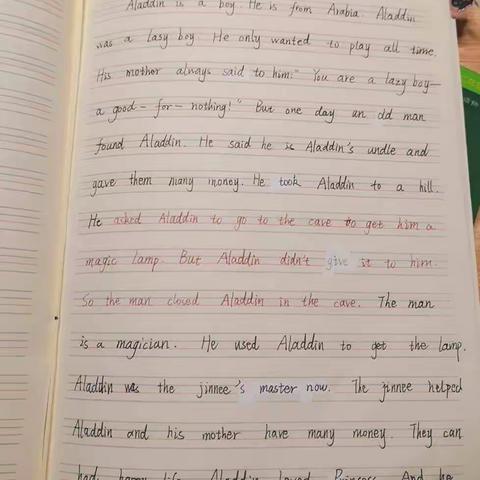 Aladdin is a boy. He is from Arabia. Aladdin
was a lasy boy. He only wanted to play all time.
His mother always said to him:" You are a lazy boy—
a good-for-nothing!" But one day an old man
found Aladdin. He said he is Aladdin's undle and
gave them many money. He took Aladdin to a hill.
He asked Aladdin to go to the cave to get him a
magic lamp. But Aladdin didn't give it to him.
So the man closed Aladdin in the cave. The man
is a magician. He used Aladdin to get the lamp.
Aladdin was the jinnee's master now. The jinnee helped
Aladdin and his mother have many money. They can
had happy life. Aladdin loved Princess. And he